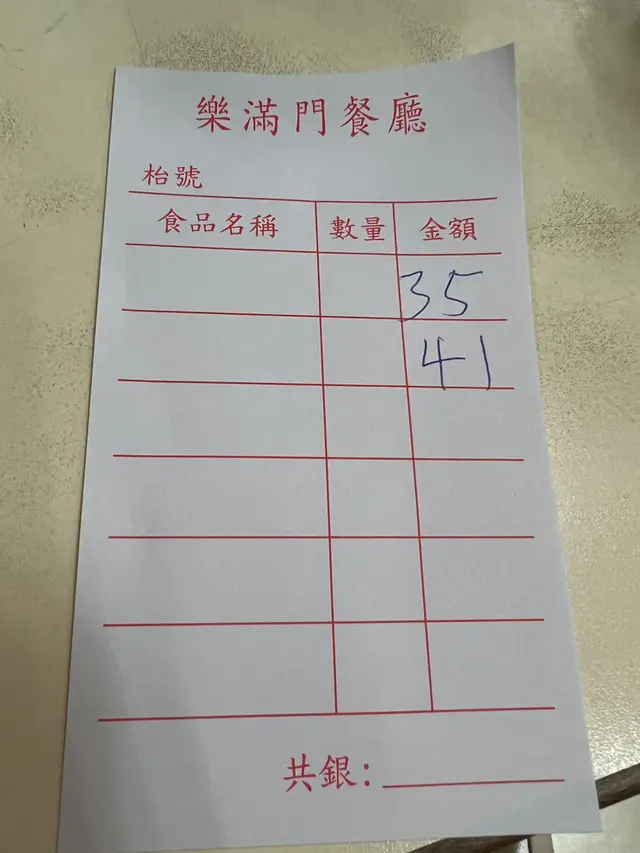 樂滿門餐廳
枱號
食品名稱 數量 金額
35
41
共銀: